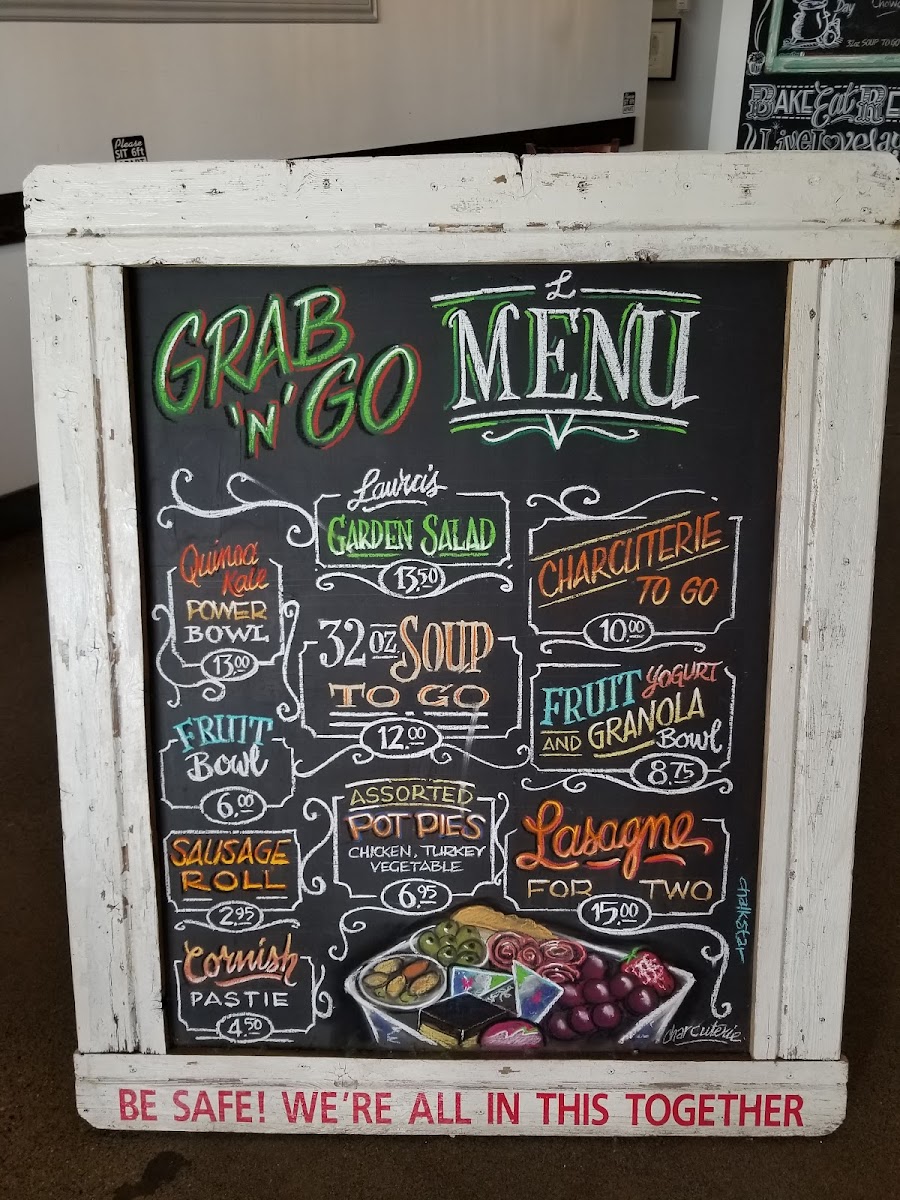 Day
32oz SOUP TO GO
BAKE Eat R
Please
SIT 6ft
GRAB
'N' GO
L
MENU
Quinoa
Kale
POWER
BOWL
13.00
Laura's
GARDEN SALAD
13.50
CHARCUTERIE
TO GO
10.00
32 oz SOUP
TO GO
12.00
FRUIT YOGURT
AND GRANOLA
Bowl
8.75
FRUIT
Bowl
6.00
ASSORTED
POT PIES
CHICKEN, TURKEY
VEGETABLE
6.95
Lasagne
FOR TWO
15.00
SAUSAGE
ROLL
2.95
Cornish
PASTIE
4.50
chalkstar
charcuterie
BE SAFE! WE'RE ALL IN THIS TOGETHER